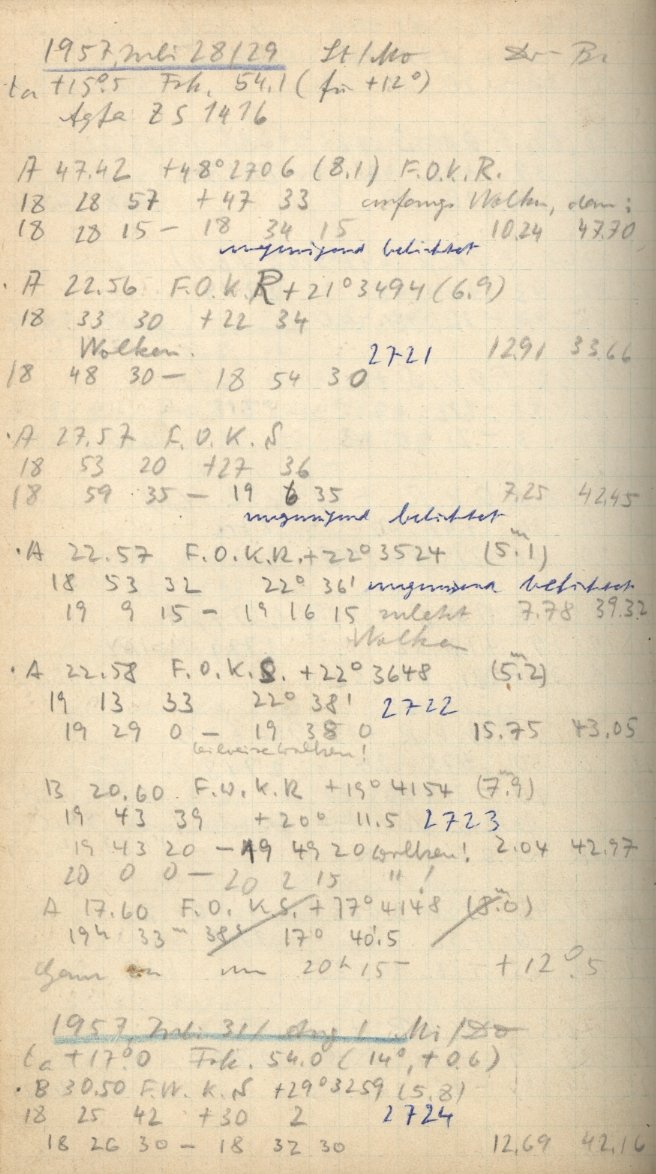 1957, Juli 28/29 St/Mo Dr - Br
ta +15°.5 Fok. 54.1 (für +12°)
Agfa ZS 1416
A 47.42 +48°2706 (8.1) F.O.K.R.
18 28 57 +47 33 anfangs Wolken, dann:
18 28 15 - 18 34 15 10.24 47.70
ungenügend belichtet
A 22.56 F.O.K.R +21°3494 (6.9)
18 33 30 +22 34
Wolken. 2721 12.91 33.66
18 48 30 - 18 54 30
A 27.57 F.O.K.S
18 53 20 +27 36
18 59 35 - 19 6 35 7.25 42.45
ungenügend belichtet
A 22.57 F.O.K.R. +22°3524 (5.m1)
18 53 32 22° 36' ungenügend belichtet
19 9 15 - 19 16 15 zuletzt 7.78 39.32
Wolken
A 22.58 F.O.K.S. +22°3648 (5.m2)
19 13 33 22° 38' 2722
19 29 0 - 19 38 0 15.75 43.05
teilweise Wolken!
B 20.60 F.W.K.R +19°4154 (7.m9)
19 43 39 +20° 11.5 2723
19 43 20 - 19 49 20 Wolken! 2.04 42.97
20 0 0 - 20 2 15 " !
A 17.60 F.O.K.S. +17°4148 (8.m0)
19h 33m 38s 17° 40'.5
um 20h 15 +12°.5
1957, Juli 31/ Aug 1 Mi/Do
ta +17°.0 Fok. 54.0 (14°, +0.6)
B 30.50 F.W.K.S +29°3259 (5.8)
18 25 42 +30 2 2724
18 26 30 - 18 32 30 12.69 42.16